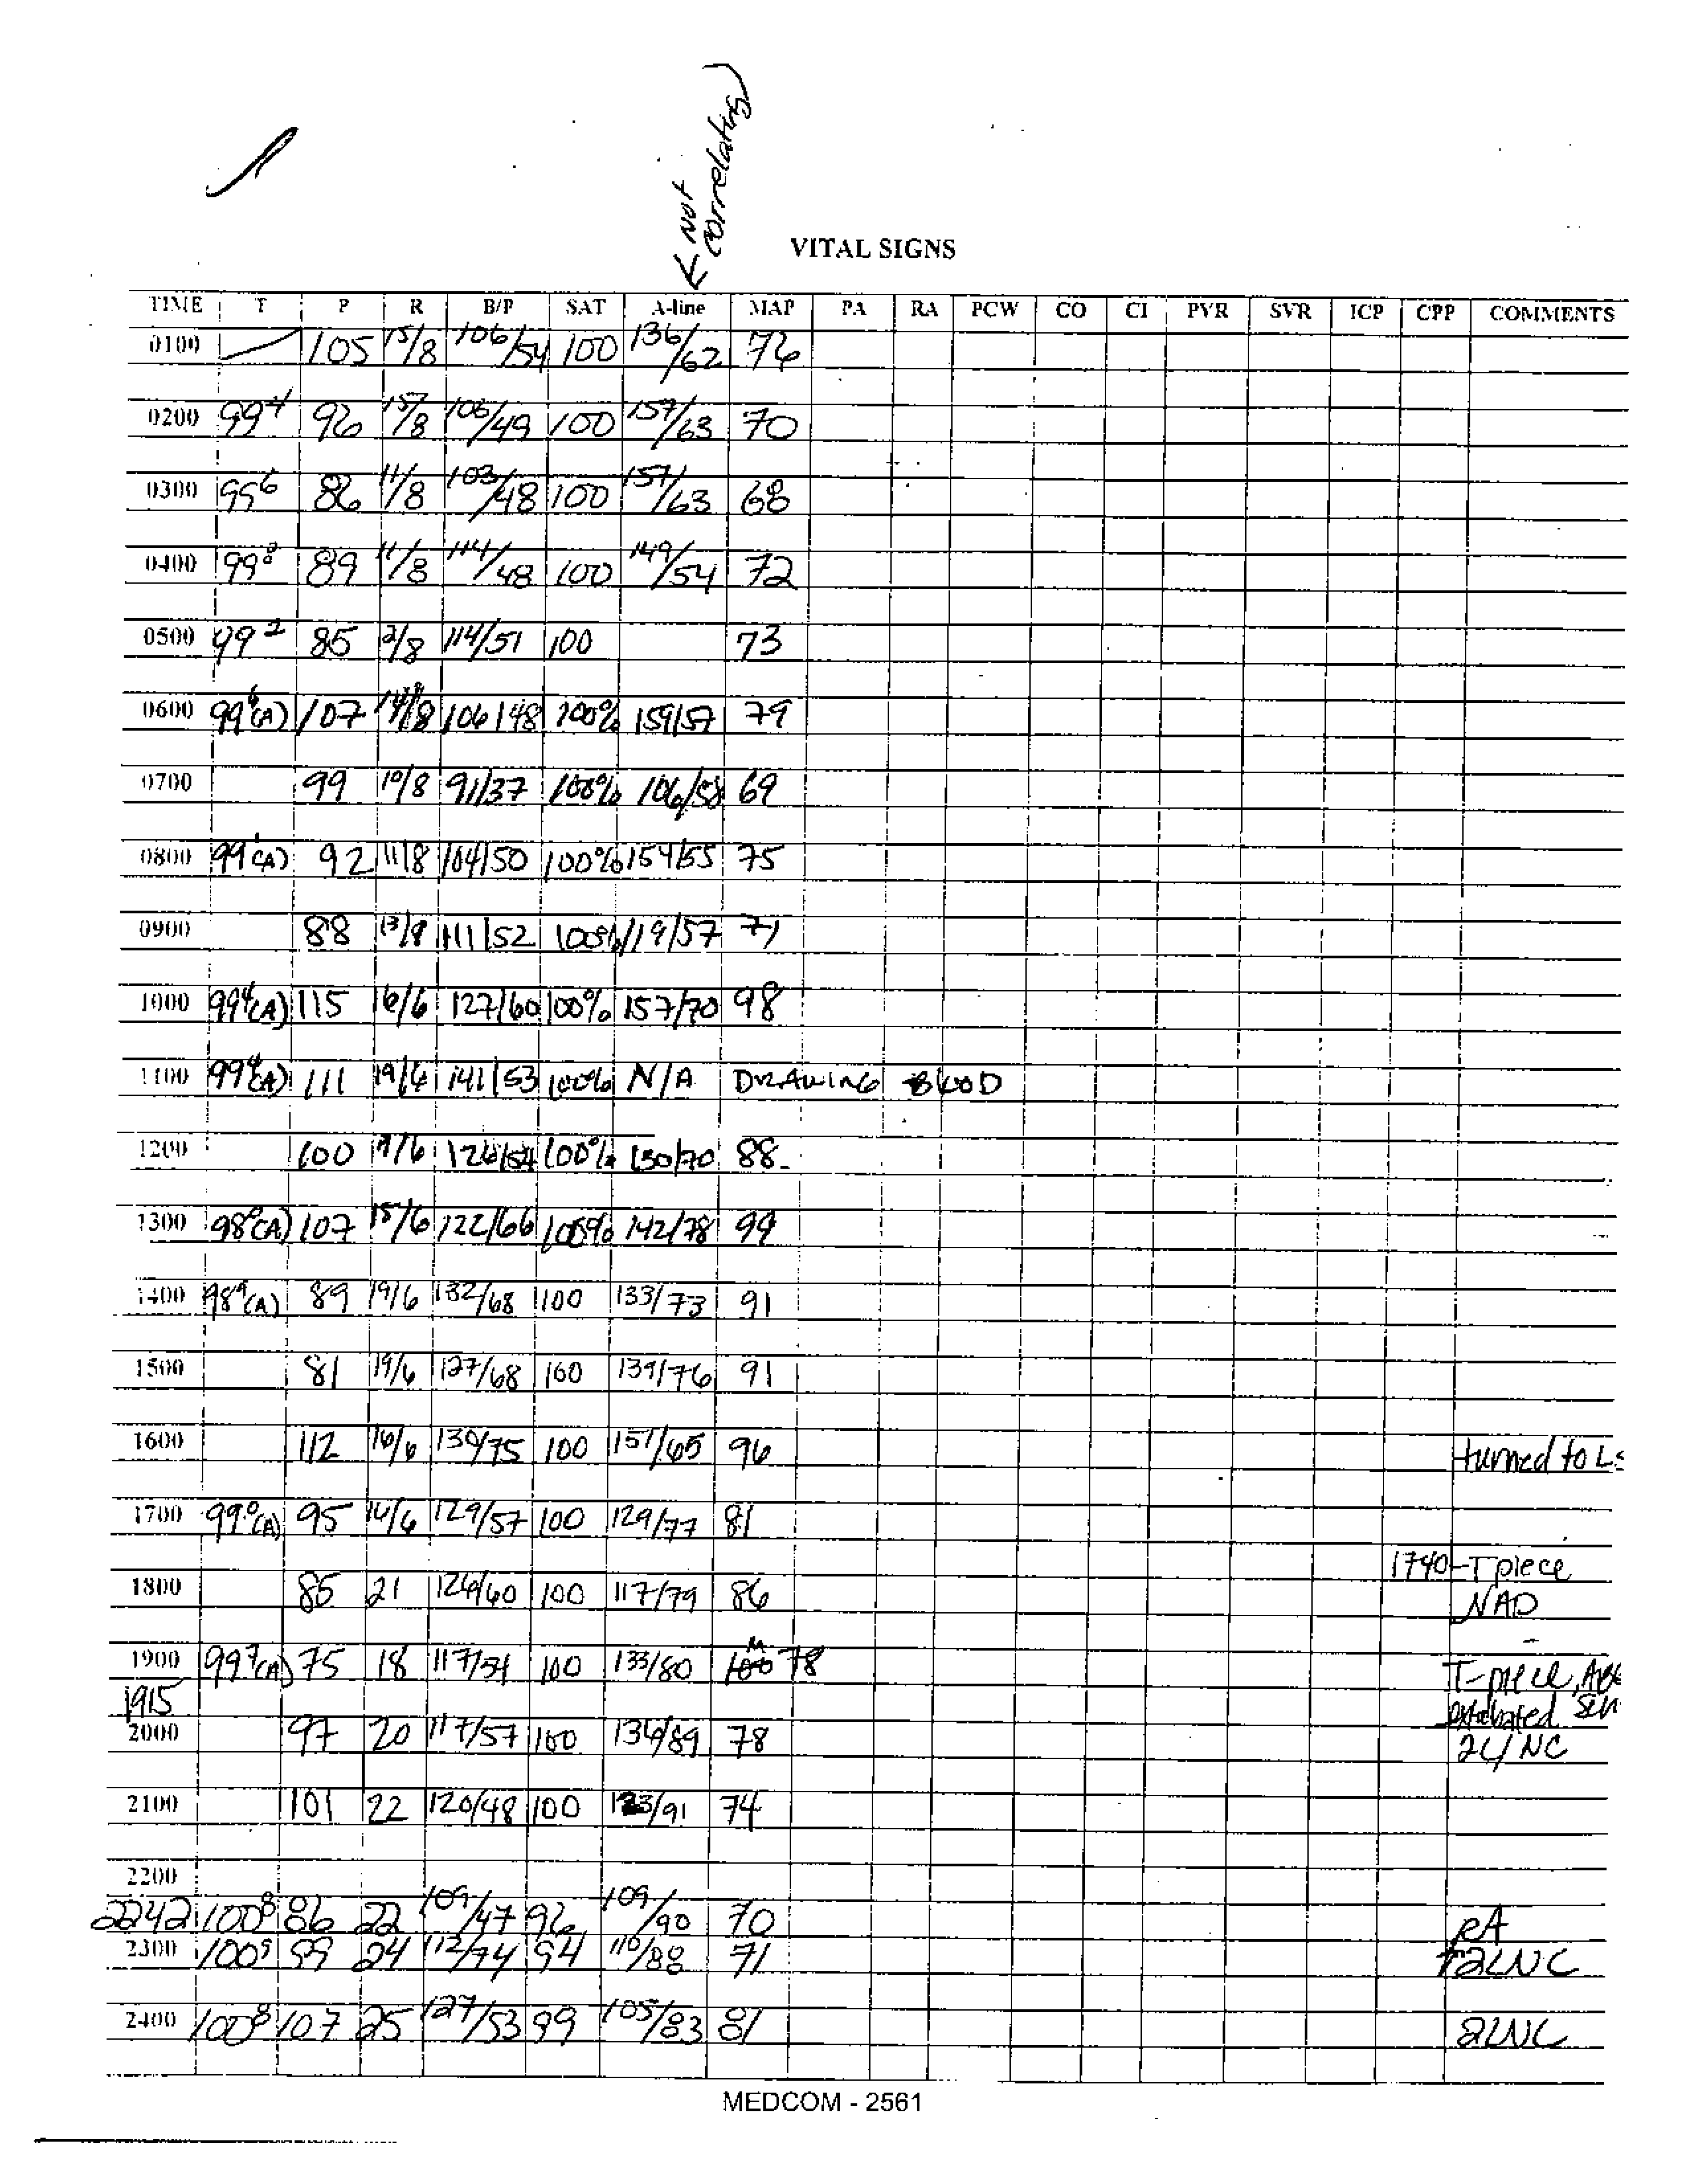 ← Not
correlating)
VITAL SIGNS
TIME T P R B/P SAT A-line MAP PA RA PCW CO CI PVR SVR ICP CPP COMMENTS
0100 105 15/8 106/54 100 136/62 76
0200 99⁴ 96 15/8 106/49 100 157/63 70
0300 99⁶ 86 11/8 103/48 100 157/63 68
0400 99⁸ 89 11/8 114/48 100 149/54 72
0500 99² 85 /8 114/51 100 73
0600 99⁶(A) 107 /8 106/48 100% 159/57 79
0700 99 10/8 91/37 100% 106/58 69
0800 99¹(A) 92 11/8 104/50 100% 154/55 75
0900 88 13/8 111/52 100% 119/57 71
1000 99⁴(A) 115 16/6 127/60 100% 157/70 98
1100 99⁴(A) 111 19/6 141/53 100% N/A DRAWING BLOOD
1200 100 /6 126/54 100% 130/70 88
1300 98⁰(A) 107 15/6 122/66 100% 142/78 99
1400 98⁹(A) 89 19/6 132/68 100 133/73 91
1500 81 19/6 127/68 100 139/76 91
1600 112 16/6 130/75 100 151/65 96 turned to L
1700 99⁰(A) 95 16/6 129/57 100 129/77 81
1740-T piece
1800 85 21 126/60 100 117/79 86 NAD
1900 99⁷(A) 75 18 117/54 100 133/80 78 T-piece, AB
1915 extubated
2000 97 20 117/57 100 136/89 78 2L/NC
2100 101 22 120/48 100 133/91 74
2200
2242 100⁸ 86 22 109/47 96 109/90 70 RA
2300 100⁹ 99 24 112/74 94 110/88 71 2LNC
2400 100⁸ 107 25 127/53 99 105/83 81 2LNC
MEDCOM - 2561